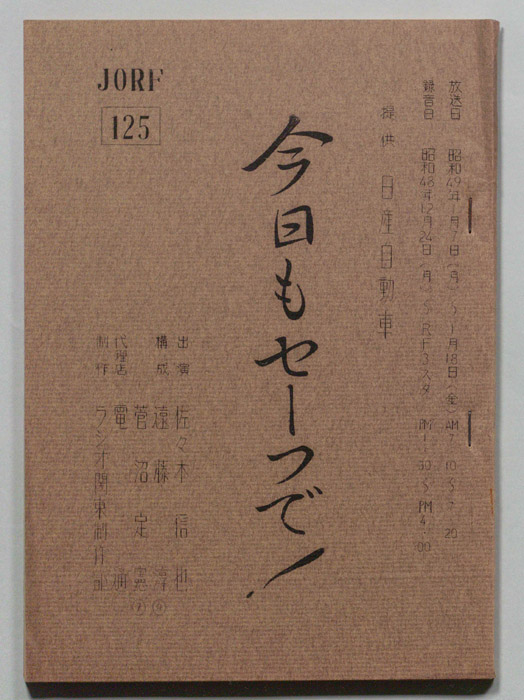 放送日 昭和49年1月7日(月)〜1月18日(金) AM7:10〜7:20
録音日 昭和48年12月24日(月) RF3スタ PM1:00〜PM4:00
提供 日産自動車
今日もセーフで!
JORF
125
出演 佐々木 信也
構成 遠藤 淳
菅沼 定憲
代理店 電通
制作 ラジオ関東制作部